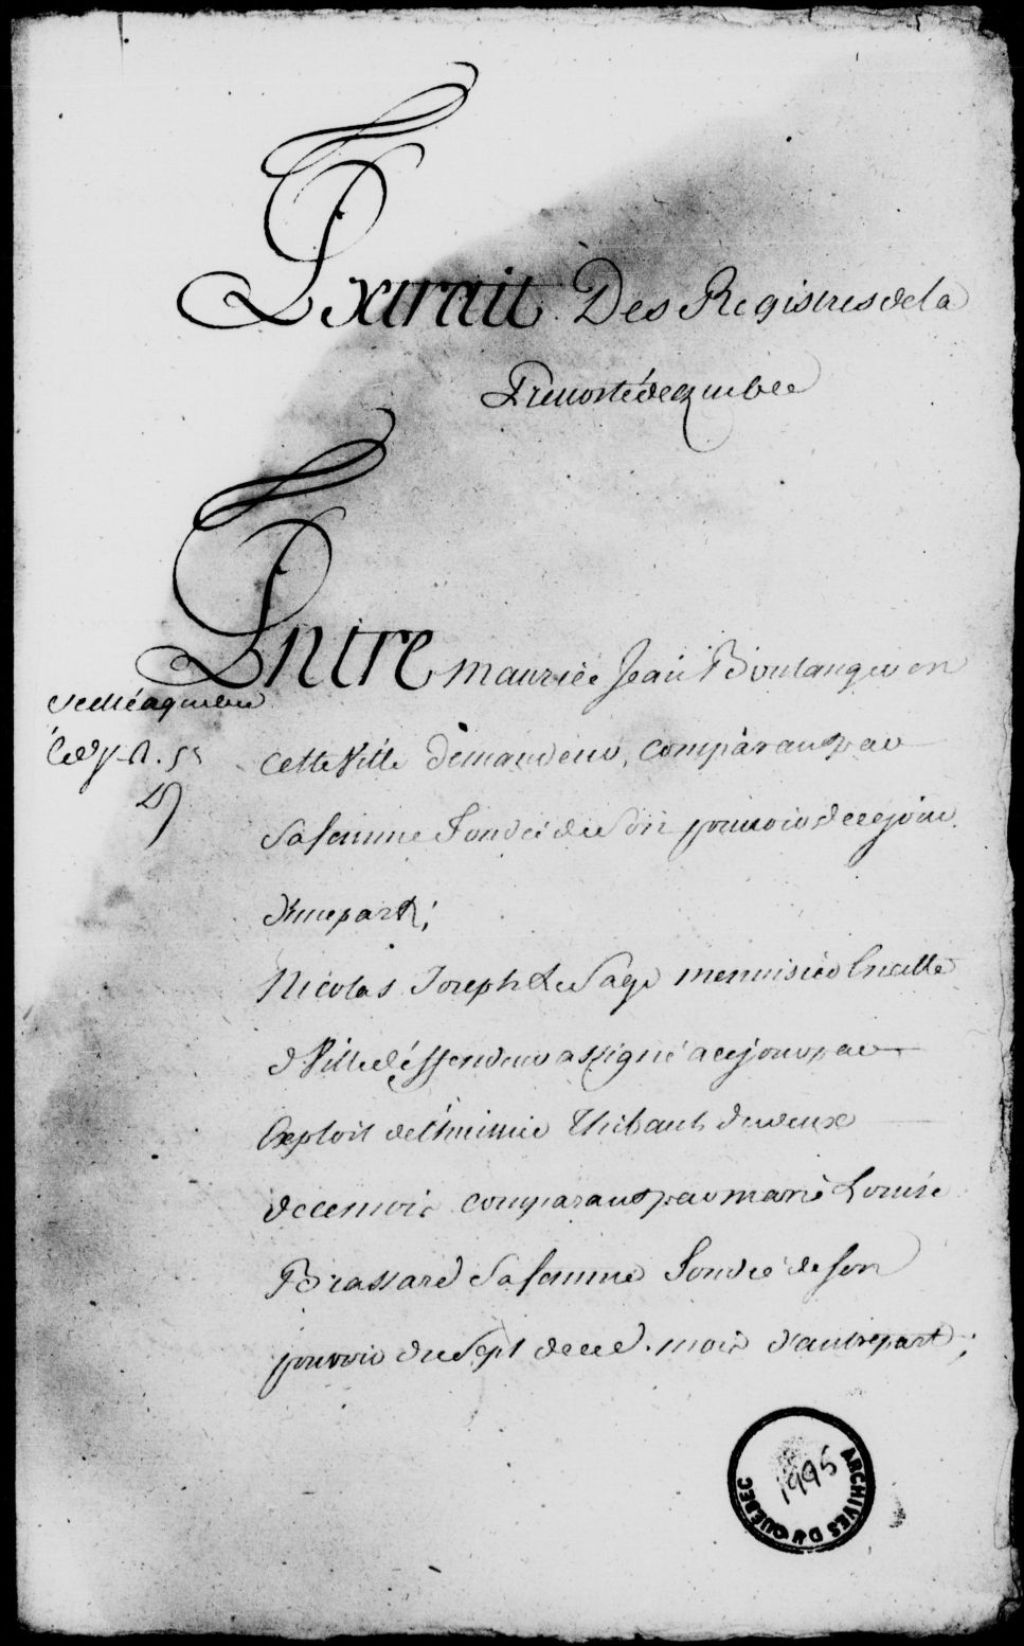 Extrait Des Registres de la
Prevosté de Quebec
Entre maurice Jean Boulanger en
cette Ville demandeur, comparant par
sa femme fondeé de son pouvoir de ce jour
d'une part;
Nicolas Joseph Le Sage menuisier en cette
d. Ville déffendeur assigné a ce jour par
Exploit de l'huissier Thibault du deux
de ce mois comparant par marie Louise
Brassard sa femme fondeé de son
pouvoir du sept de ce d. mois d'autre part;
ARCHIVES DU QUEBEC
1995